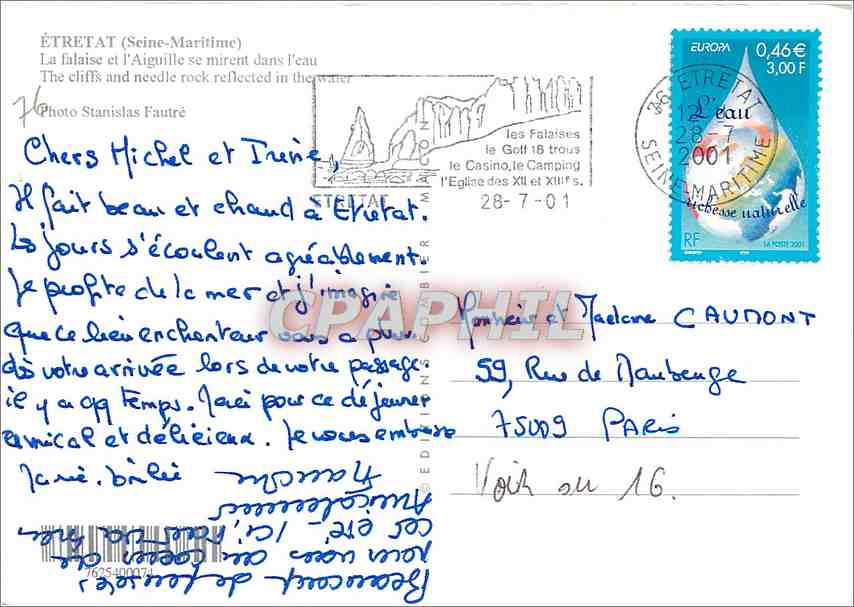 ÉTRETAT (Seine-Maritime)
La falaise et l'Aiguille se mirent dans l'eau
The cliffs and needle rock reflected in the water
76
Photo Stanislas Fautré
Chers Michel et Irène,
Il fait beau et chaud à Etretat.
Les jours s'écoulent agréablement.
Je profite de la mer et j'imagine
que ce lieu enchanteur vous a plu
dès votre arrivée lors de votre passage
il y a qq temps. Merci pour ce déjeuner
amical et délicieux. Je vous embrasse
Marie-
Beaucoup de pensées
pour vous au cours de
cet été - Ici, tout va bien
Amicalement
les Falaises
le Golf 18 trous
le Casino, le Camping
l'Eglise des XII et XIII s.
ETRETAT
28-7-01
EUROPA
0,46 €
3,00 F
L'eau
richesse naturelle
RF
LA POSTE 2001
76 ETRETAT
12
28-7
2001
SEINE-MARITIME
© EDITIONS COMBIER MACON
CPAPHIL
Monsieur et Madame CAUDONT
59, Rue de Maubeuge
75009 PARIS
Voir au 16.
7625400074